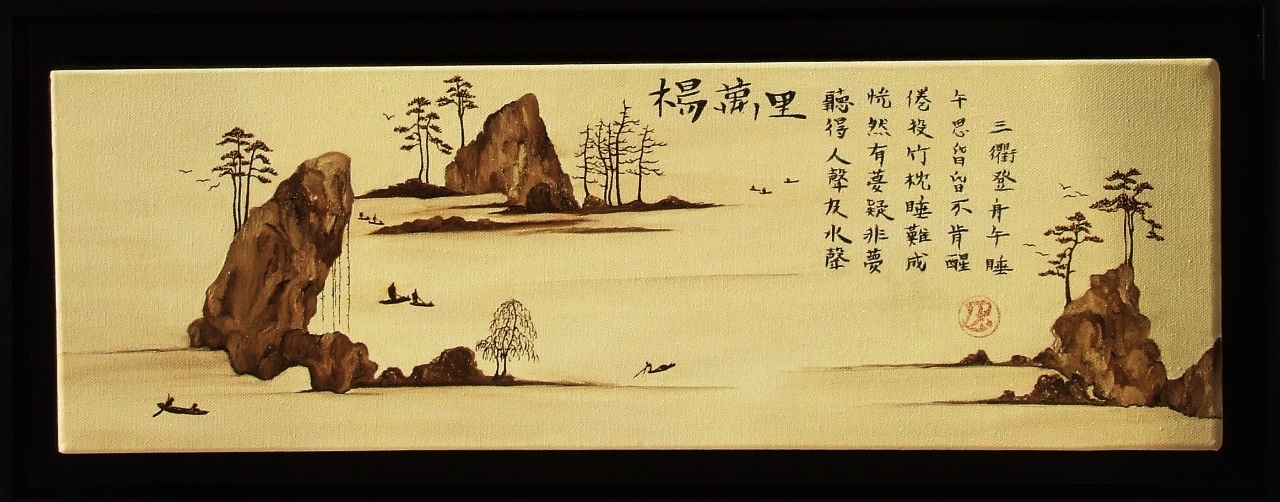 楊萬里
三衢登舟午睡
午思昏昏不肯醒
倦投竹枕睡難成
恍然有夢疑非夢
聽得人聲及水聲